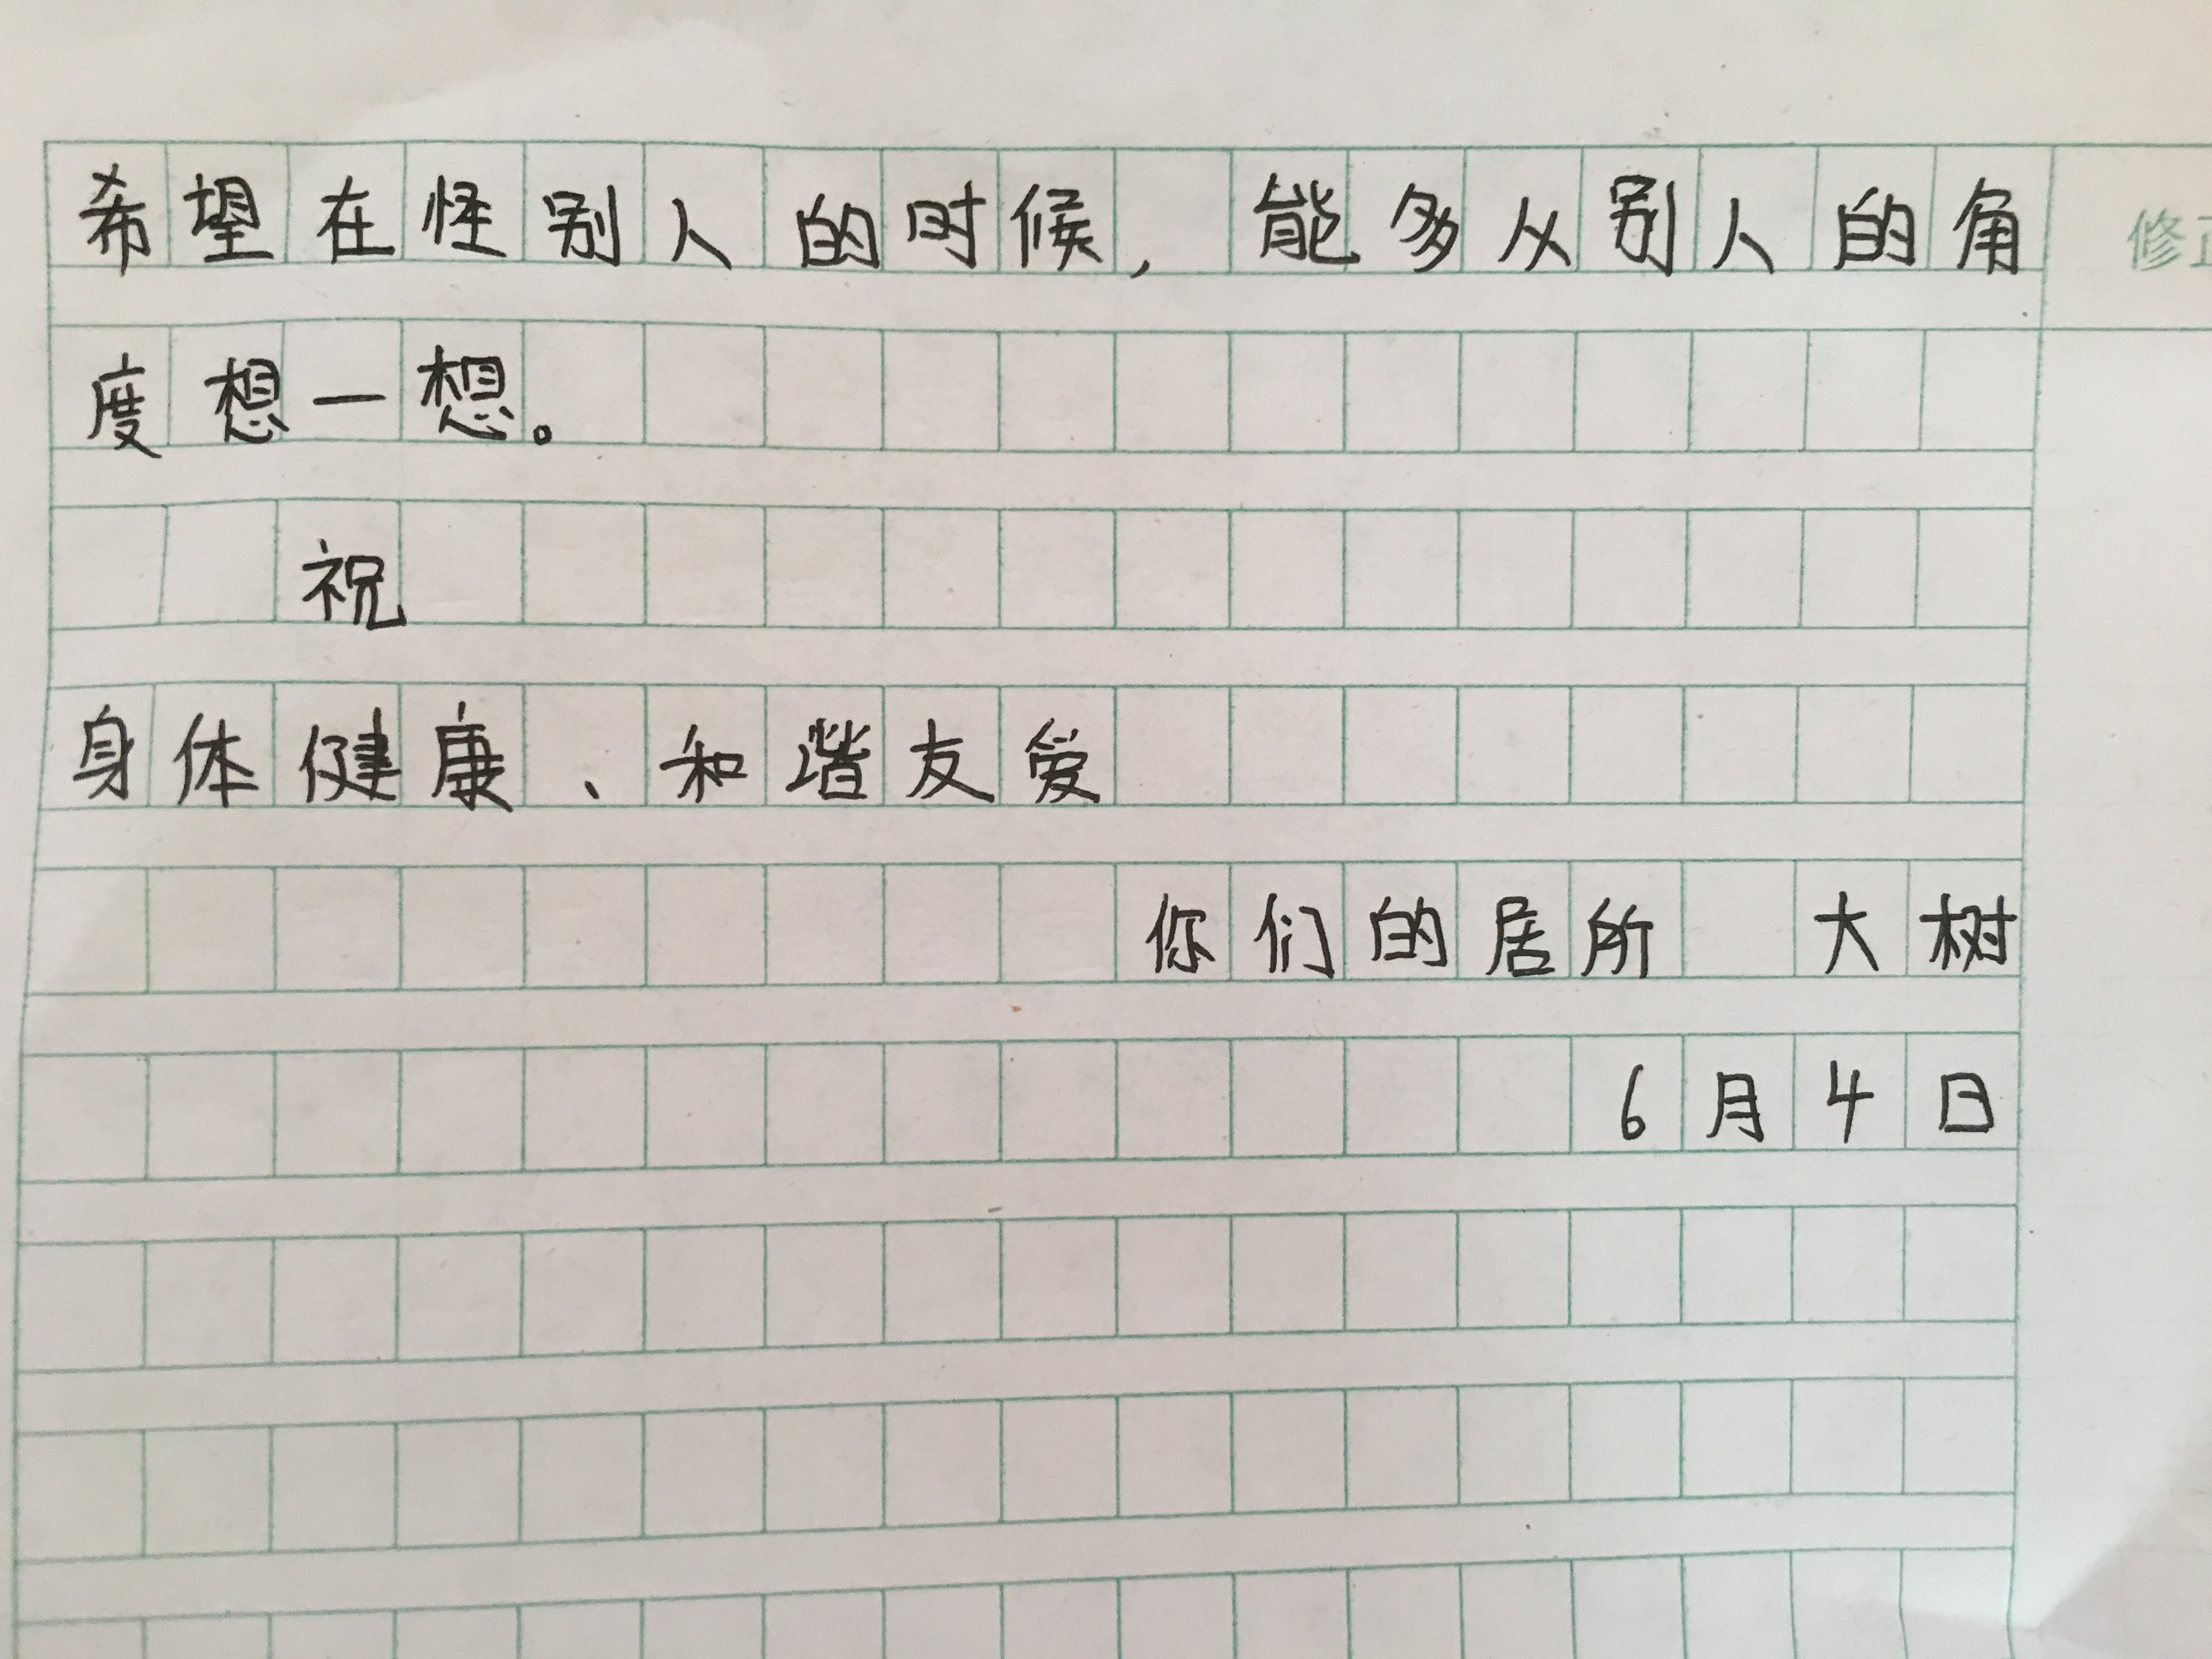 希望在怪别人的时候，能多从别人的角
度想一想。
祝
身体健康、和谐友爱
你们的居所 大树
6月4日
修正